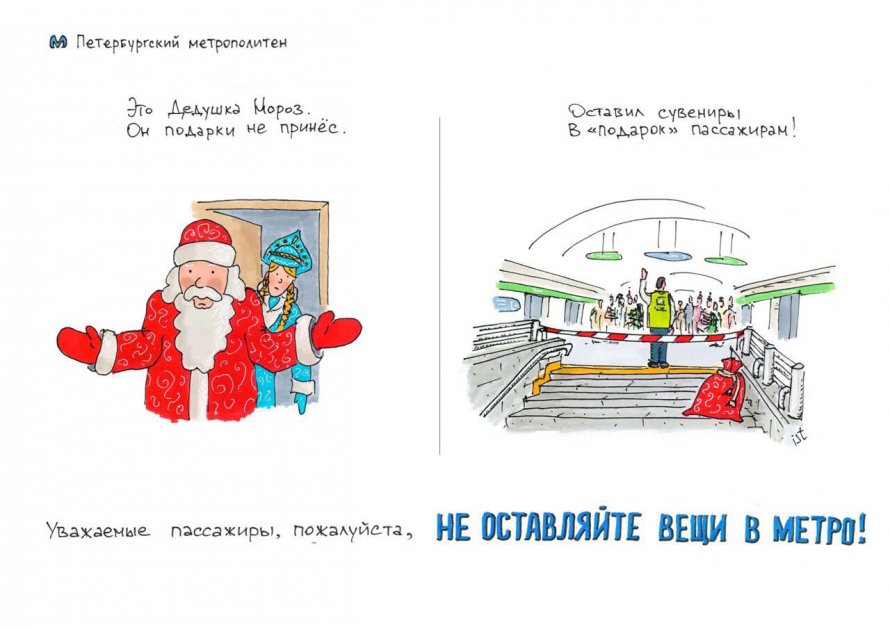 М Петербургский метрополитен
Это Дедушка Мороз.
Он подарки не принёс.
Оставил сувениры
В «подарок» пассажирам!
ist
Уважаемые пассажиры, пожалуйста, НЕ ОСТАВЛЯЙТЕ ВЕЩИ В МЕТРО!